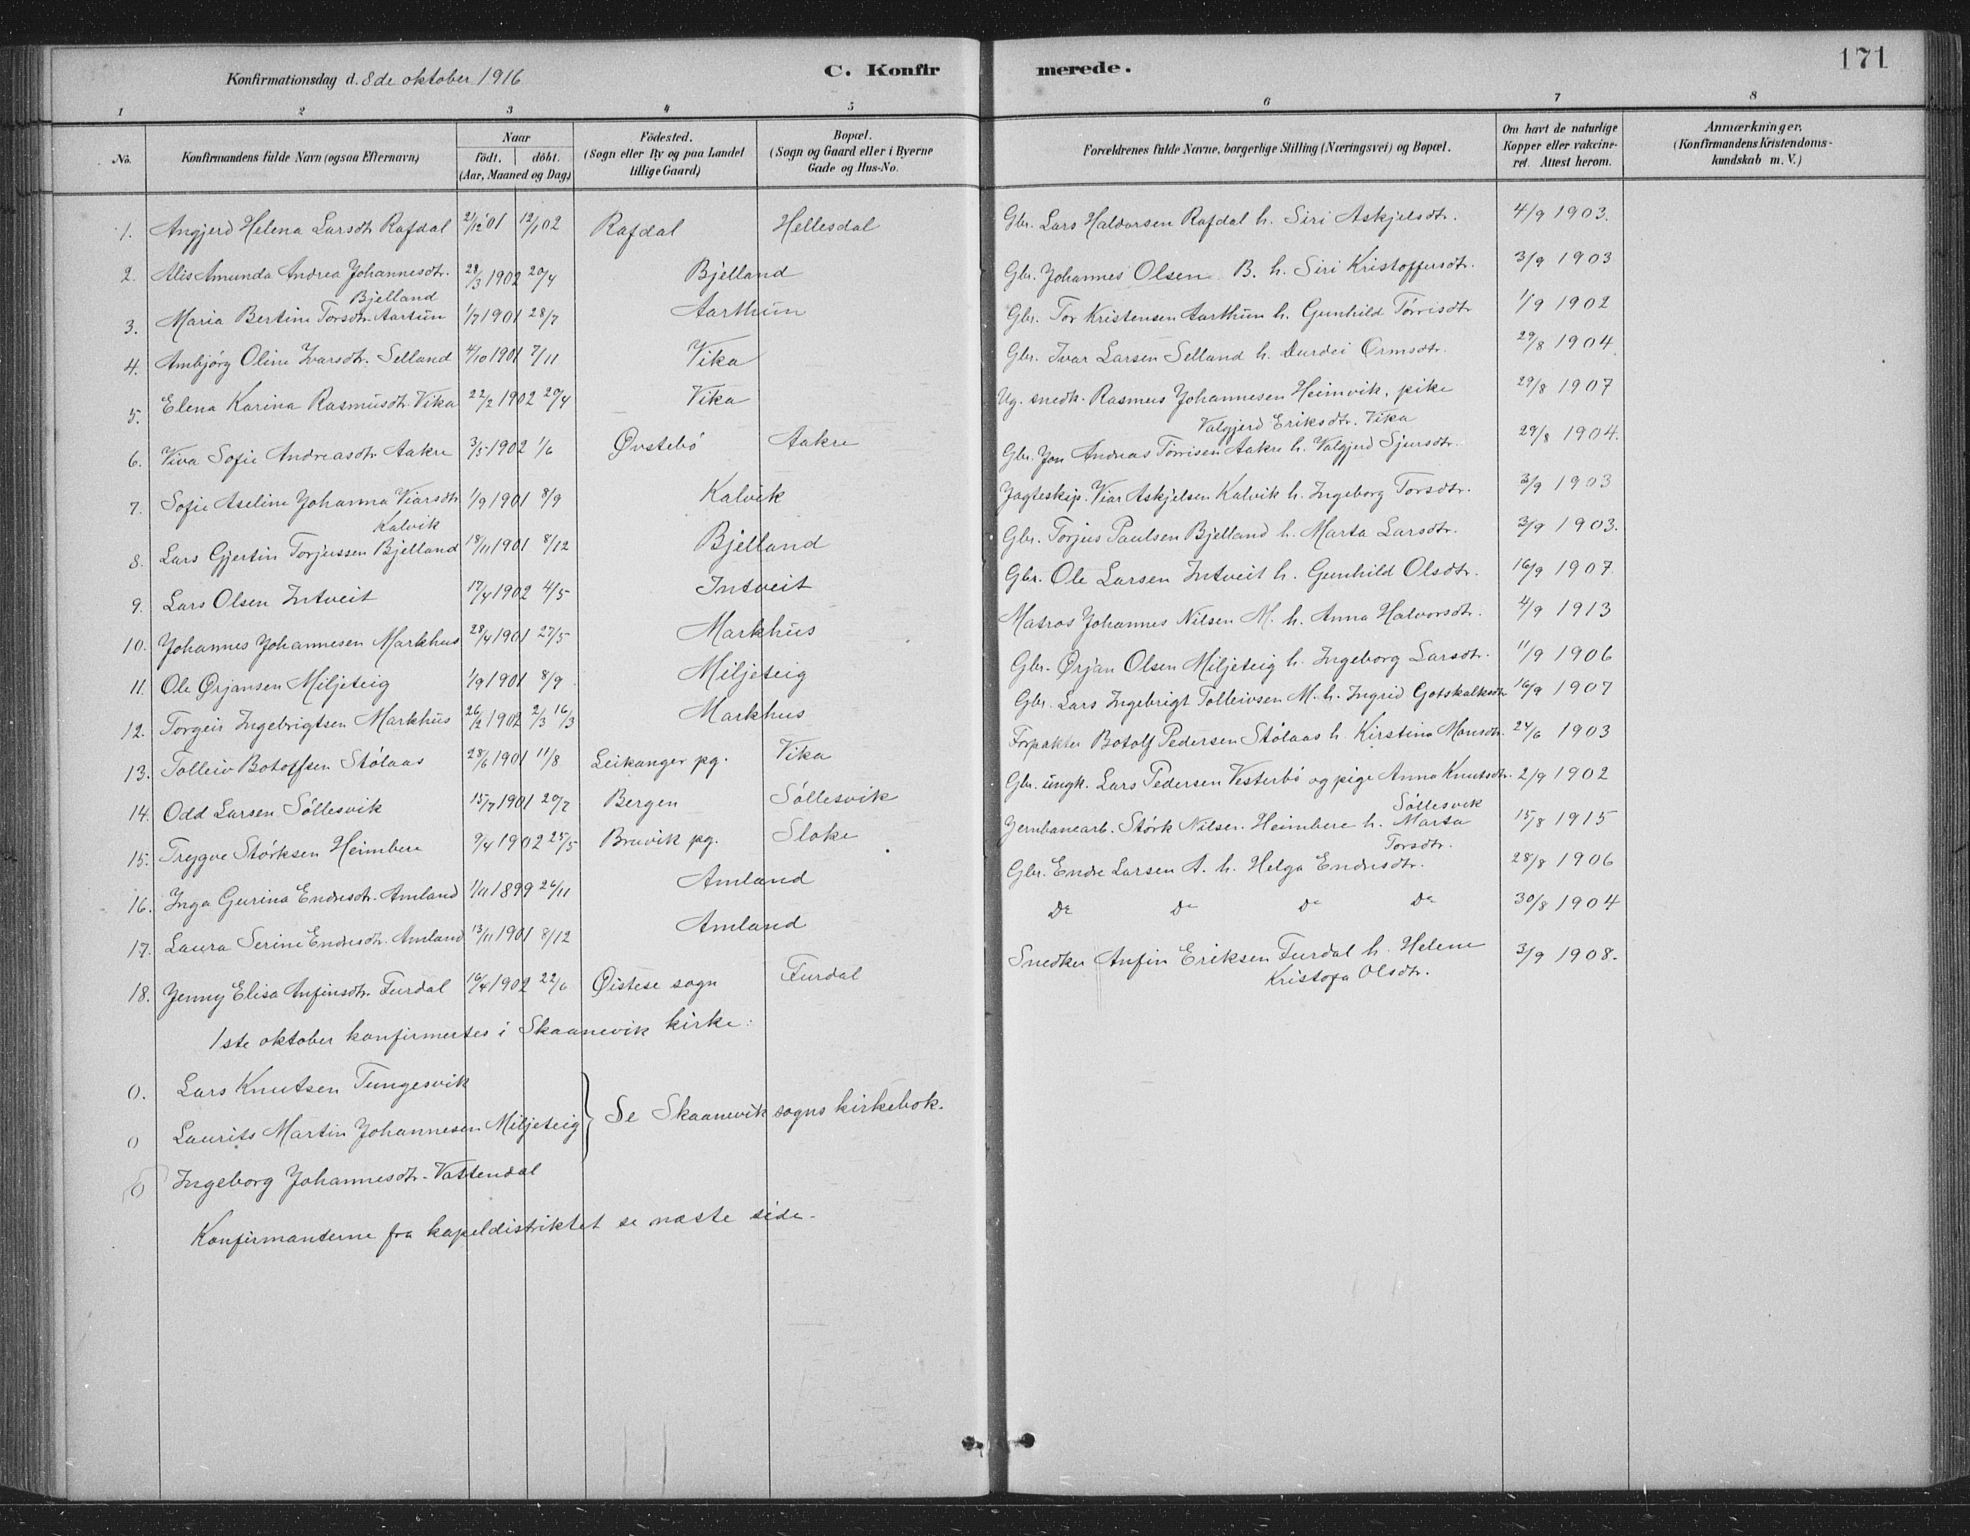 171
Konfirmationsdag d. 8de oktober 1916 C. Konfirmerede.
1 2 3 4 5 6 7 8
No. Konfirmandens fulde Navn (ogsaa Efternavn) Naar født. døbt. (Aar, Maaned og Dag) Födested. (Sogn eller By og paa Landet tillige Gaard) Bopæl. (Sogn og Gaard eller i Byerne Gade og Hus-No. Forældrenes fulde Navne, borgerlige Stilling (Næringsvei) og Bopæl. Om havt de naturlige Kopper eller vakcineret. Attest herom. Anmærkninger. (Konfirmandens Kristendomskundskab m. V.)
1. Angjerd Helena Larsdtr. Rafdal 21/12 01 12/1 02 Rafdal Hellesdal Gbr. Lars Haldorsen Rafdal h. Siri Askjelsdtr. 4/9 1903.
2. Alis Amunda Andrea Johannesdtr. Bjelland 28/3 1902 20/4 Bjelland Gbr. Johannes Olsen B. h. Siri Kristoffersdtr. 3/9 1903
3. Maria Bertine Torsdtr. Aartun 1/7 1901 28/7 Aarthun Gbr. Tor Kristensen Aarthun h. Gunhild Tørrisdtr 1/9 1902
4. Ambjørg Oline Ivarsdtr. Selland 4/10 1901 7/11 Vika Gbr. Ivar Larsen Selland h. Durdei Ormsdtr. 29/8 1904.
5. Elena Karina Rasmusdtr. Vika 22/2 1902 20/4 Vika Ug. snedk. Rasmus Johannesen Heimvik, pike Valgjerd Eriksdtr. Vika 29/8 1907
6. Viva Sofie Andreasdtr Aakre 3/5 1902 1/6 Øvstebö Aakre Gbr. Jon Andreas Tørrisen Aakre h. Valgjerd Sjursdtr. 29/8 1904.
7. Sofie Aseline Johanna Viarsdtr Kalvik 1/9 1901 8/9 Kalvik Jagteskip. Viar Askjelsen Kalvik h. Ingeborg Torsdtr. 3/9 1903
8. Lars Gjertin Torjussen Bjelland 18/11 1901 8/12 Bjelland Gbr. Torjus Paulsen Bjelland h. Marta Larsdtr. 3/9 1903.
9. Lars Olsen Intveit 17/4 1902 4/5 Intveit Gbr. Ole Larsen Intveit h. Gunhild Olsdtr. 16/9 1907.
10. Johannes Johannesen Markhus 28/4 1901 27/5 Markhus Matros Johannes Nilsen M. h. Anna Halvorsdtr. 4/9 1913
11. Ole Ørjansen Miljeteig 1/9 1901 8/9 Miljeteig Gbr. Ørjan Olsen Miljeteig h. Ingeborg Larsdtr. 11/9 1906
12. Torgeir Ingebrigtsen Markhus 26/2 1902 2/3 16/3 Markhus Gbr. Lars Ingebrigt Tolleivsen M. h. Ingrid Gotskalksdtr 16/9 1907
13. Tolleiv Botolfsen Stølaas 28/6 1901 11/8 Leikanger pg. Vika Forpakter Botolf Pedersen Stølaas h. Kirstina Monsdtr. 24/6 1903
14. Odd Larsen Søllesvik 15/7 1901 20/7 Bergen Søllesvik Gbr. ungk. Lars Pedersen Vesterbø og pige Anna Knutsdtr. Søllesvik 2/9 1902
15. Trygve Størksen Heimbere 9/4 1902 25/5 Bruvik pg. Sloke Jernbanearb. Størk Nilsen Heimbere h. Marta Torsdtr. 15/8 1915
16. Inga Gurina Endresdtr. Amland 1/11 1899 26/11 Amland Gbr. Endre Larsen A. h. Helga Endresdtr. 28/8 1906
17. Laura Serine Endresdtr. Amland 13/11 1901 8/12 Amland Do Do Do Do 30/8 1904
18. Jenny Elisa Anfinsdtr. Furdal 10/4 1902 22/6 Øistese sogn Furdal Snedker Anfin Eriksen Furdal h. Helene Kristofa Olsdtr. 3/9 1908.
1ste oktober konfirmertes i Skaanevik kirke:
0. Lars Knutsen Tungesvik
0 Laurits Martin Johannesen Miljeteig } Se Skaanevik sogns kirkebok.
0 Ingeborg Johannesdtr. Vattendal
Konfirmanterne fra kapeldistriktet se næste side.